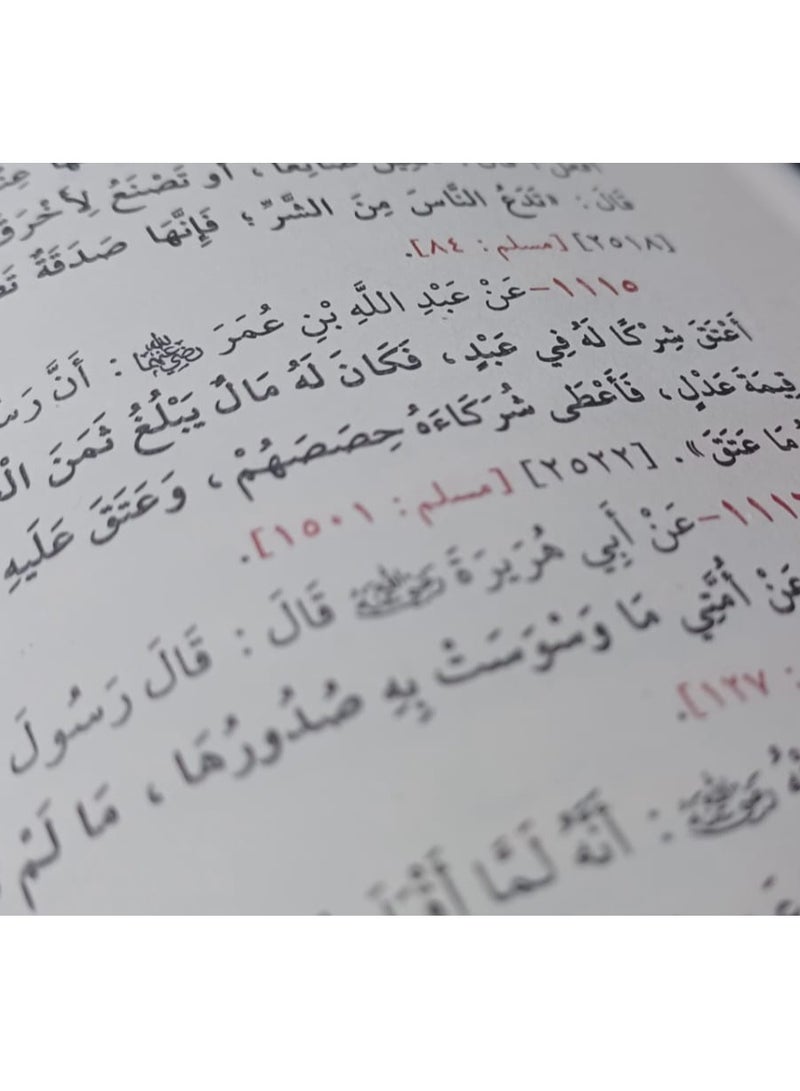 أو تَصْنَعُ لِأَخْرَقَ
قَالَ: «تَدَعُ النَّاسَ مِنَ الشَّرِّ؛ فَإِنَّهَا صَدَقَةٌ
[٢٥١٨] [مسلم: ٨٤].
١١١٥- عَنْ عَبْدِ اللَّهِ بْنِ عُمَرَ رضي الله عنهما: أَنَّ
أَعْتَقَ شِرْكًا لَهُ فِي عَبْدٍ، فَكَانَ لَهُ مَالٌ يَبْلُغُ ثَمَنَ
قِيمَةَ عَدْلٍ، فَأَعْطَى شُرَكَاءَهُ حِصَصَهُمْ، وَعَتَقَ عَلَيهِ
مَا عَتَقَ». [٢٥٢٢] [مسلم: ١٥٠١].
عَنْ أَبِي هُرَيرَةَ رضي الله عنه قَالَ: قَالَ رَسُولَ
عَنْ أُمَّتِي مَا وَسْوَسَتْ بِهِ صُدُورُهَا، مَا لَمْ
١٢٧].
رضي الله عنه: أَنَّهُ لَمَّا